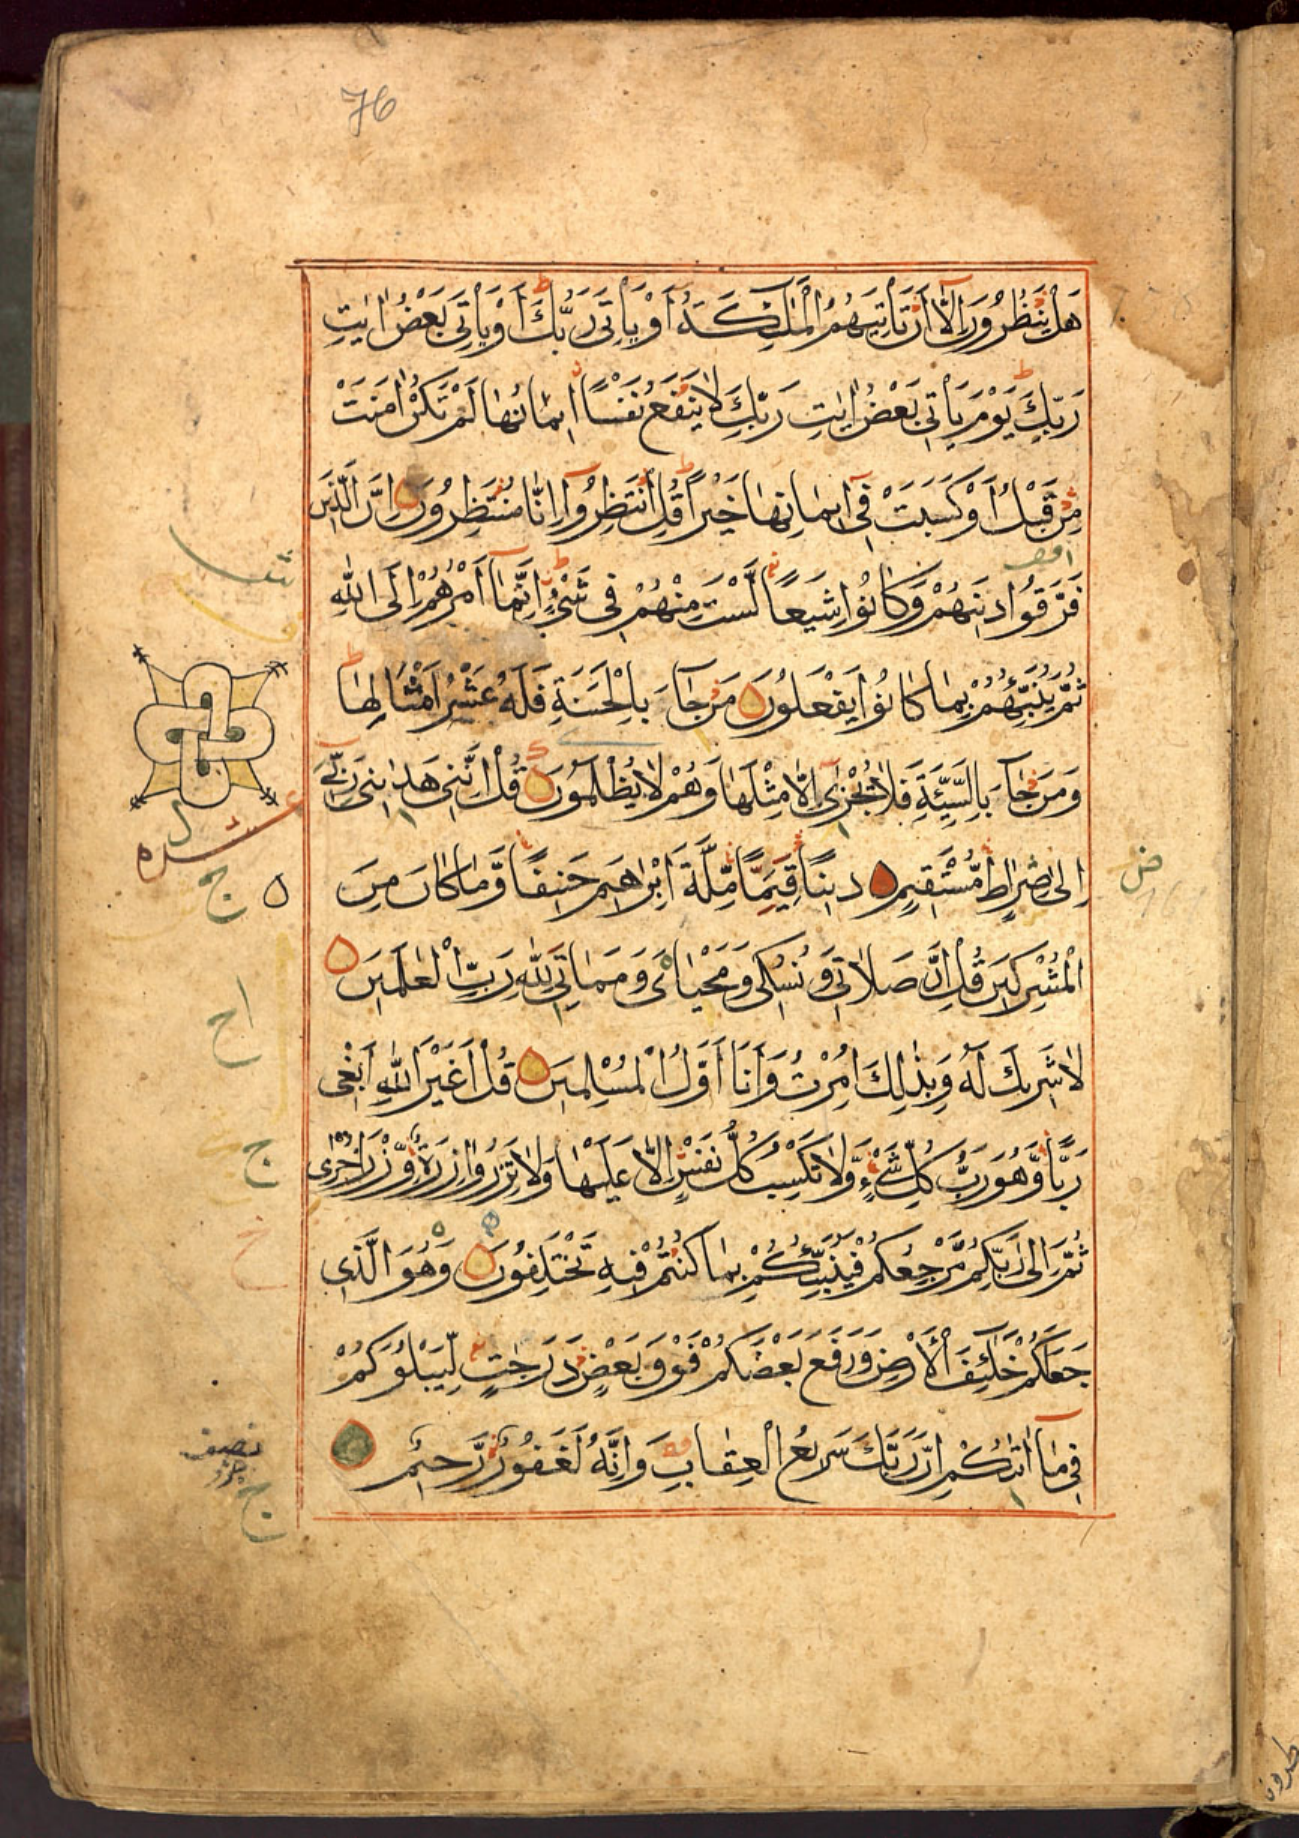 76
هَلْ يَنْظُرُونَ اِلَّا اَنْ تَأْتِيَهُمُ الْمَلٰٓئِكَةُ اَوْ يَأْتِىَ رَبُّكَ اَوْ يَأْتِىَ بَعْضُ اٰيٰتِ
رَبِّكَ يَوْمَ يَأْتِى بَعْضُ اٰيٰتِ رَبِّكَ لَا يَنْفَعُ نَفْسًا اِيمَانُهَا لَمْ تَكُنْ اٰمَنَتْ
مِنْ قَبْلُ اَوْ كَسَبَتْ فِىٓ اِيمَانِهَا خَيْرًا قُلِ انْتَظِرُوٓا اِنَّا مُنْتَظِرُونَ اِنَّ الَّذِينَ
فَرَّقُوا دِينَهُمْ وَكَانُوا شِيَعًا لَّسْتَ مِنْهُمْ فِى شَىْءٍ اِنَّمَآ اَمْرُهُمْ اِلَى اللّٰهِ
ثُمَّ يُنَبِّئُهُمْ بِمَا كَانُوا يَفْعَلُونَ مَنْ جَآءَ بِالْحَسَنَةِ فَلَهُ عَشْرُ اَمْثَالِهَا
وَمَنْ جَآءَ بِالسَّيِّئَةِ فَلَا يُجْزٰىٓ اِلَّا مِثْلَهَا وَهُمْ لَا يُظْلَمُونَ قُلْ اِنَّنِى هَدٰىنِى رَبِّىٓ
اِلٰى صِرَاطٍ مُّسْتَقِيمٍ دِينًا قِيَمًا مِّلَّةَ اِبْرٰهِيمَ حَنِيفًا وَّمَا كَانَ مِنَ
الْمُشْرِكِينَ قُلْ اِنَّ صَلَاتِى وَنُسُكِى وَمَحْيَاىَ وَمَمَاتِى لِلّٰهِ رَبِّ الْعٰلَمِينَ
لَا شَرِيكَ لَهُ وَبِذٰلِكَ اُمِرْتُ وَاَنَا اَوَّلُ الْمُسْلِمِينَ قُلْ اَغَيْرَ اللّٰهِ اَبْغِى
رَبًّا وَّهُوَ رَبُّ كُلِّ شَىْءٍ وَّلَا تَكْسِبُ كُلُّ نَفْسٍ اِلَّا عَلَيْهَا وَلَا تَزِرُ وَازِرَةٌ وِّزْرَ اُخْرٰى
ثُمَّ اِلٰى رَبِّكُمْ مَّرْجِعُكُمْ فَيُنَبِّئُكُمْ بِمَا كُنْتُمْ فِيهِ تَخْتَلِفُونَ وَهُوَ الَّذِى
جَعَلَكُمْ خَلٰٓئِفَ الْاَرْضِ وَرَفَعَ بَعْضَكُمْ فَوْقَ بَعْضٍ دَرَجٰتٍ لِّيَبْلُوَكُمْ
فِى مَآ اٰتٰىكُمْ اِنَّ رَبَّكَ سَرِيعُ الْعِقَابِ وَاِنَّهُ لَغَفُورٌ رَّحِيمٌ